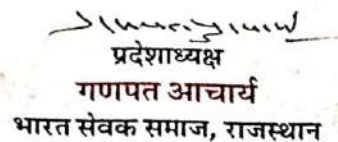 प्रदेशाध्यक्ष
गणपत आचार्य
भारत सेवक समाज, राजस्थान